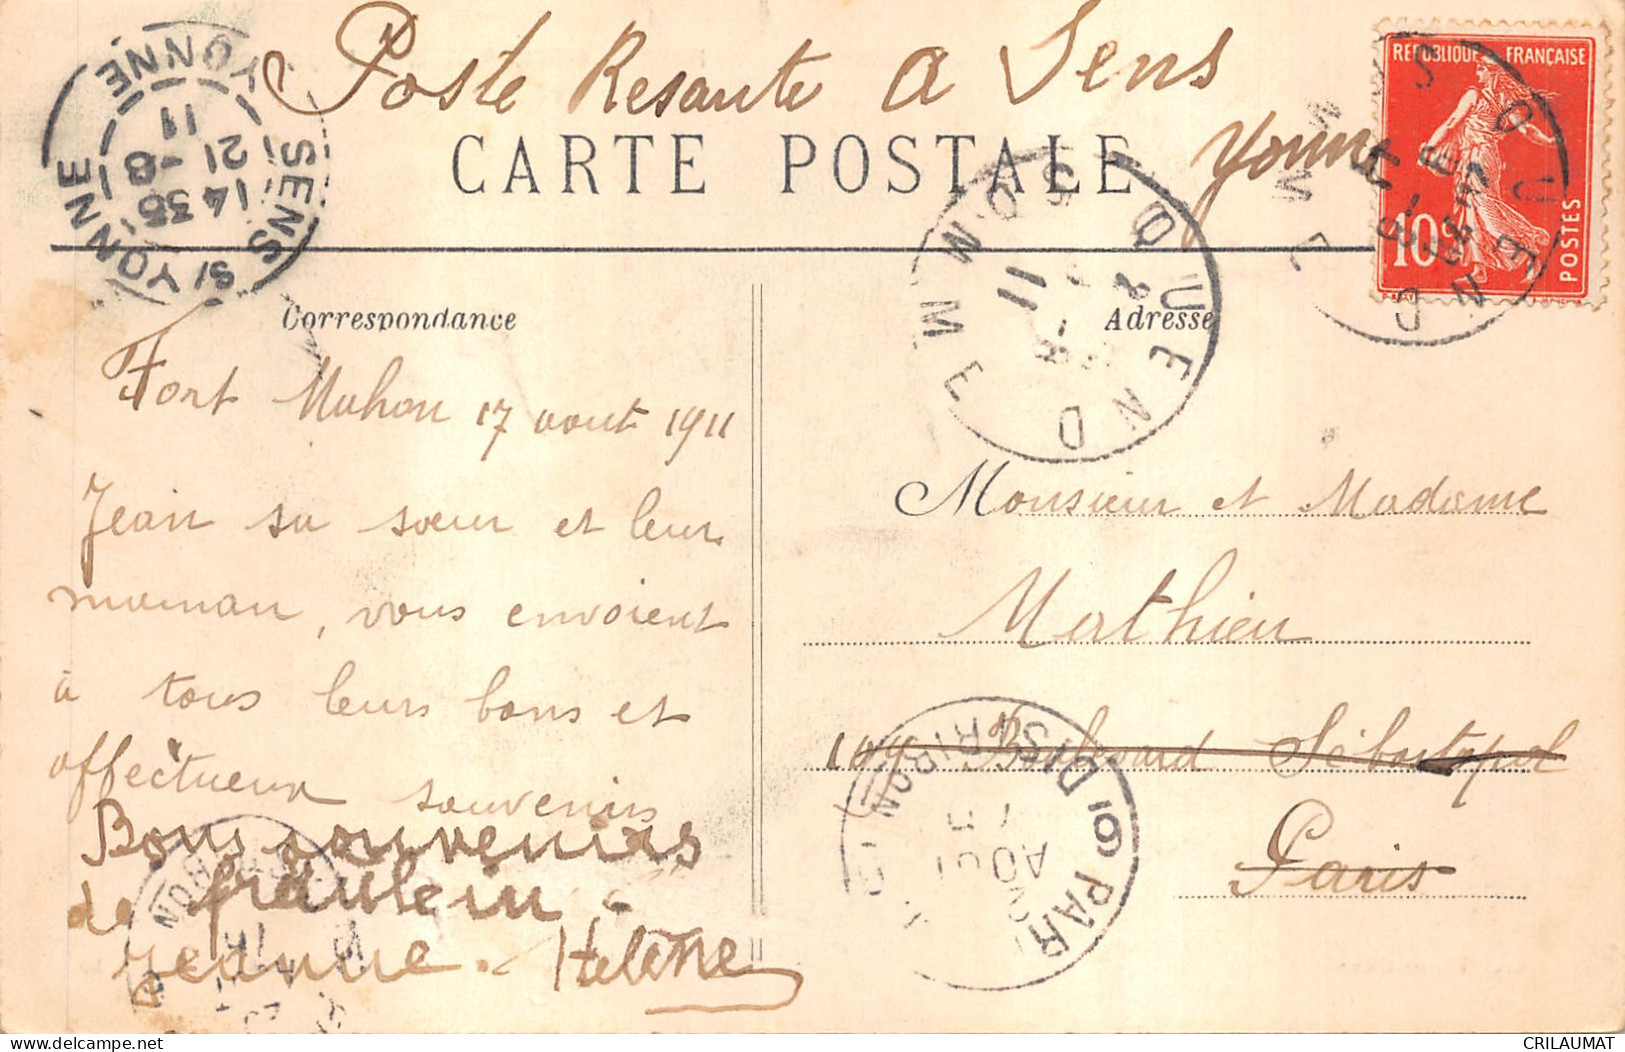 Poste Resante a Sens
Yonne
CARTE POSTALE
REPUBLIQUE FRANÇAISE
10
POSTES
SENS S/YONNE
YONNE
1435
21-8
11
QUEND
SOMME
2
-8
11
QUEND
SOMME
Correspondance
Adresse
Fort Mahon 17 aout 1911
Jean sa sœur et leur
maman, vous envoient
à tous leurs bons et
affectueux souvenirs
Bons souvenirs
de fräulein -
Jeanne. Hélène
Monsieur et Madame
Mathieu
109 Boulevard Sébastopol
Paris
PARIS
DISTRIBON
AOUT
CRILAUMAT